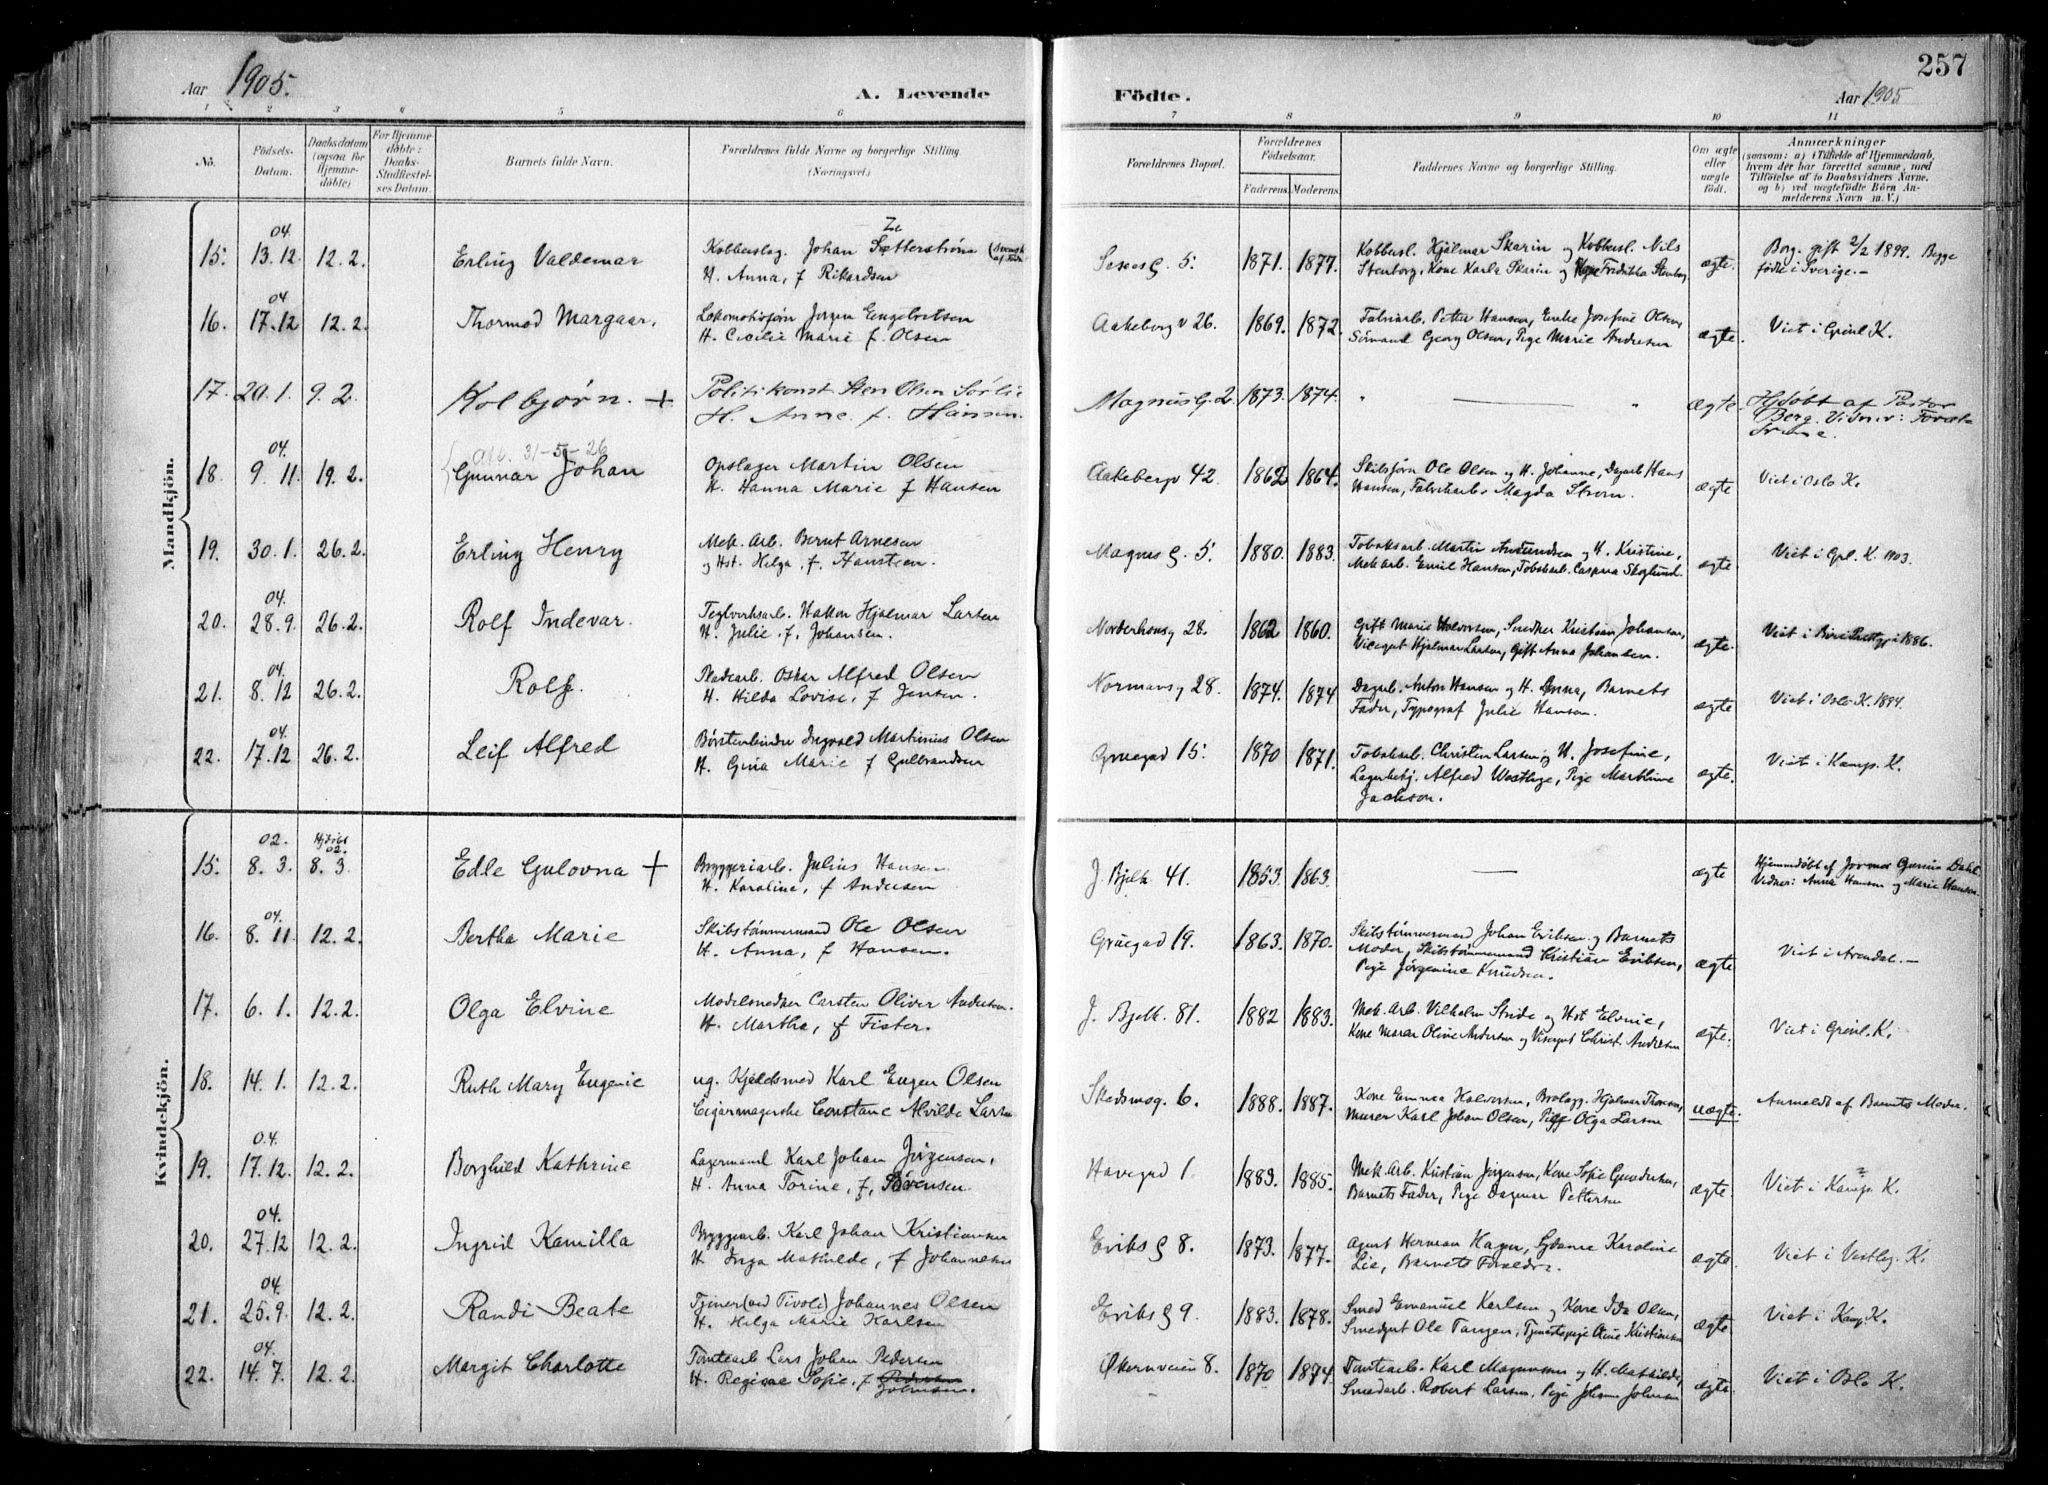 257
Aar 1905.
A. Levende
Födte.
Aar 1905
1 2 3 4 5 6 7 8 9 10 11
No.
Födsels-
Datum.
Daabsdatum
(ogsaa for
Hjemme-
döbte)
For Hjemme-
döbte:
Daabs-
Stadfæstel-
ses Datum.
Barnets fulde Navn.
Forældrenes fulde Navne og borgerlige Stilling.
(Næringsvei.)
Forældrenes Bopæl.
Forældrenes
Födselsaar.
Faderens. Moderens.
Faddernes Navne og borgerlige Stilling.
Om ægte
eller
uægte
födt.
Anmærkninger
(saasom: a) i Tilfælde af Hjemmedaab,
hvem der har forrettet samme, med
Tilföielse af to Daabsvidners Navne,
og b) ved uægtefödte Börn An-
melderens Navn m. V.)
Mandkjön.
15. 04. 13.12 12.2. Erling Valdemar
Kobberslag. Johan Setterström
H. Anna, f Rikardsen
5. 1871. 1877.
Kobbersl. Hjalmar Skarin og Kobbersl. Nils
Stenborg, Kone Karla Skarin og Kone Fredrikka Stenborg
ægte.
Borg. gift 2/2 1899. Begge
födte i Sverige.-
16. 04 17.12 12.2. Thormod Margaar.
Lokomotivförer Jörgen Engebretsen
H. Cecilie Marie f. Olsen
Aakeberg v 26. 1869. 1872.
Petter Hansen, Enke Josefine Olsen,
Sömand Georg Olsen, Pige Marie Andresen
ægte.
Viet i Grönl K.
17. 20.1. 9.2. Kolbjørn. +
Politikonst Sten Olsen Sörlie
H. Anne. f. Hansen.
Magnus G. 2. 1873. 1874.
" — "
ægte.
Hjdöbt af Pastor
Berg. Vidner:
18. 04. 9.11. 19.2. 31-5-26 Gunnar Johan
Opslager Martin Olsen
H. Hanna Marie f Hansen
Aakebergv 42. 1862 1864.
Skibsförer Ole Olsen og H. Johanne, Dagarb. Hans
Hansen, Fabrikarb. Magda Strøm.
ægte
Viet i Oslo K.
19. 30.1. 26.2. Erling Henry
Mek. Arb. Bernt Arnesen
og Hst. Helga, f. Hansteen.
Magnus g. 5. 1880. 1883.
Tobaksarb. Martin Amundsen og H. Kristine,
Mek arb. Emil Hansen, Tobakarb. Caspara Skoglund.
ægte.
Viet i Grl. K. 1903.
20. 04. 28.9. 26.2. Rolf Indevar.
Teglverksarb. Hakon Hjalmar Larsen
H. Julie. f. Johansen.
Norderhovsg 28. 1862 1860.
Gift Marie Halvorsen, Snedker Kristian Johansen,
Visegut Hjalmar Larsen, Gift Anna Johansen.
ægte.
Viet i 1886.
21. 04. 8.12 26.2. Rolf.
Pladearb. Oskar Alfred Olsen
H. Hilda Lovise, f Jensen.
Normansg 28. 1874. 1874
Dagarb. Anton Hansen og H. Anna, Barnets
Fader, Typograf Julie Hansen.
ægte
Viet i Oslo K. 1894.
22. 04. 17.12 26.2. Leif Alfred
Børstenbinder Ingvald Martinius Olsen
H. Gina Marie f Gulbrandsen
Gruegad 15. 1870 1871.
Tobakarb. Christen Larsen og H. Josefine,
Lagerbetj. Alfred Westlye, Pige Marthine
Jackson.
ægte.
Viet i Kamp. K.
Kvindekjön.
15. 02. 8.3. Hjdöbt 02. 8.3 Edle Gulovna +
Bryggeriarb. Julius Hansen
H. Karoline, f Andersen
J. Bjelk. 41. 1853. 1863.
—
ægte
Hjemmedöbt af Dahl
Vidner: Anna Hansen og Marie Hansen
16. 04. 8.11 12.2. Bertha Marie
Skibstömmermand Ole Olsen
H. Anna, f Hansen.
Gruegad 19. 1863. 1870.
Skibstömmermand Johan Eriksen og Barnets
Moder, Skibstömmermand Kristian Eriksen,
Pige Jörgenine Knudsen.
ægte.
Viet i Arendal.-
17. 6.1. 12.2. Olga Elvine
Modelsnedker Carsten Oliver Andresen.
H. Martha, f Fister.
J. Bjelk. 81. 1882 1883.
Mek. Arb. Vilhelm Stride og Hst Elvine,
Kone Maren Oline Andersen og Visergut Christ. Andresen
ægte.
Viet i Grönl. K.
18. 14.1. 12.2. Ruth Mary Eugenie
ug. Kjeldsmed Karl Eugen Olsen
Cigarmagerske Constanse Alvilde Larsen
Skedsmog. 6. 1888. 1887.
Kone Emma Halvorsen, Brolegg. Hjalmar Thoresen,
Murer Karl Johan Olsen, Olga Larsen
uægte.
Anmeldt af Barnets Moder.
19. 04. 17.12. 12.2. Borghild Kathrine
Lagermand Karl Johan Jörgensen,
H. Anna Torine, f. Sörensen.
Havegad 1. 1883. 1885.
Mek. Arb. Kristian Jörgensen, Kone Sofie Gundersen,
Barnets Fader, Pige Dagmar Pettersen
ægte.
Viet i Kamp. K.
20. 04. 27.12 12.2. Ingrid Kamilla
Bryggearb. Karl Johan Kristiansen
H. Inga Mathilde, f Johannesen
Eriks g 8. 1873. 1877.
Agent Herman Hagen, Karoline
Lie, Barnets Foreldre.
ægte.
Viet i Vestby. K.
21. 04. 25.9. 12.2. Randi Beate
Tjener (ved Tivoli) Johannes Olsen
H. Helga Marie Karlsen
Eriks g 9. 1883. 1878.
Smed Emanuel Karlsen og Kone Ida Olsen,
Smedgut Ole Tangen, Tjenestepige Oline Kristiansen
ægte.
Viet i Kamp. K.
22. 04. 14.7. 12.2. Margit Charlotte
Tomtearb Lars Johan Pedersen
H. Regine Sofie, f. Pedersen
Johnsen.
Økernveien 8. 1870 1874.
Tomtearb. Karl Magnussen og H. Mathilde,
Smedarb. Robert Larsen, Pige Johnsen
ægte.
Viet i Oslo K.